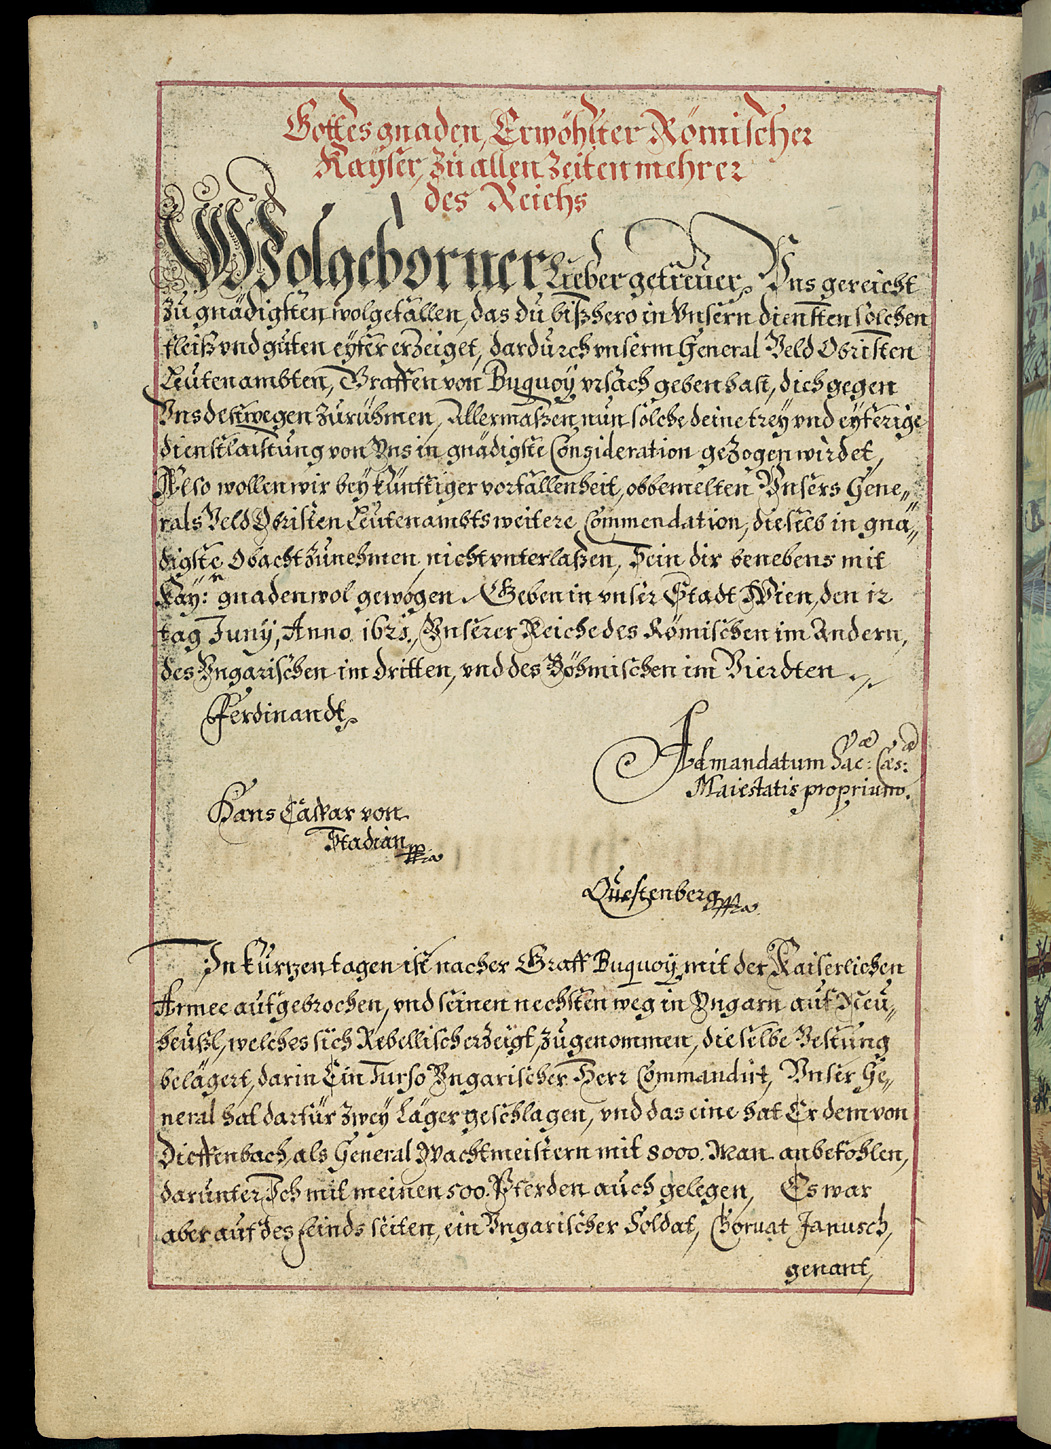 Gottes gnaden, Erwöhlter Römischer
Kayser, zu allen Zeiten mehrer
des Reichs
Wolgeborner Lieber getreuer, Vns gereicht
zu gnädigsten wolgefallen, das du bißhero in Vnsern diensten solchen
fleiß vnd guten eyfer erzeiget, dardurch vnserm General Veld Obristen
Leutenambten, Graffen von Buquoy vrsach geben hast, dich gegen
Vns deßwegen zurühmen, Allermaßen nun solche deine trey vnd eyferige
dienstlaistung von Vns in gnädigste Consideration gezogen wirdet,
Also wollen wir bey künfftiger vorfallenheit, obbemelten Vnsers Gene„
rals Veld Obristen Leutenambts weitere Commendation, dieselb in gnä„
digste Obacht zunehmen, nicht vnterlaßen, Sein dir benebens mit
Kay: n gnaden wol gewogen. Geben in vnser Stadt Wien, den 12
tag Juny, Anno 1621, Vnserer Reiche des Römischen im Andern,
des Vngarischen im dritten, vnd des Böhmischen im Vierdten.
Ferdinandt,
Ad mandatum Sac: æ Cæs: æ
Maiestatis proprium.
Hans Caspar von
Stadian
Questenberg
In kurtzen tagen ist nacher Graff Buquoy mit der Kaiserlichen
Armee aufgebrochen, vnd seinen nechsten weg in Vngarn auf Neu„
heußl, welches sich Rebellisch erzeigt, zugenommen, dieselbe Vestung
belägert, darin Ein Turso Vngarischer Herr Commandirt, Vnser Ge„
neral hat darfür zwey Läger geschlagen, vnd das eine hat Er dem von
Dieffenbach, als General Wachtmeistern mit 8000. Man anbefohlen,
darunter Ich mit meinen 500. Pferden auch gelegen, Es war
aber auf des feinds seiten, ein Vngarischer Soldat, Chorvat Janusch,
genant,